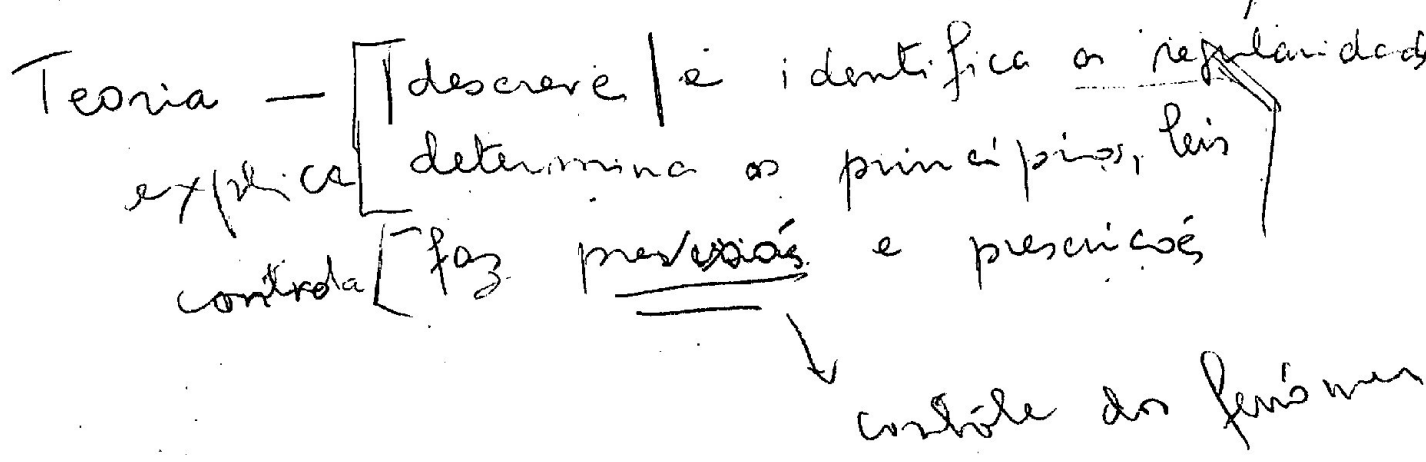 Teoria — descreve e identifica as regularidad
explica determina os princípios, leis
controla faz previsões e prescrições
contrôle dos fenômen